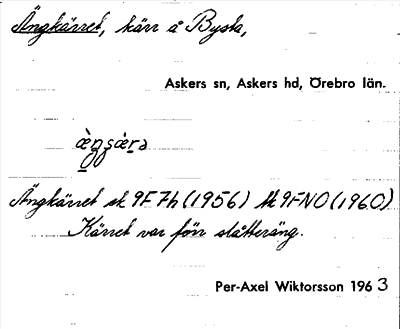 Ängkärret, kärr å Bysta,
Askers sn, Askers hd, Örebro län.
Ängkärret ek 9F7h (1956) 9FNO (1960)
Kärret var förr slåtteräng.
Per-Axel Wiktorsson 1963